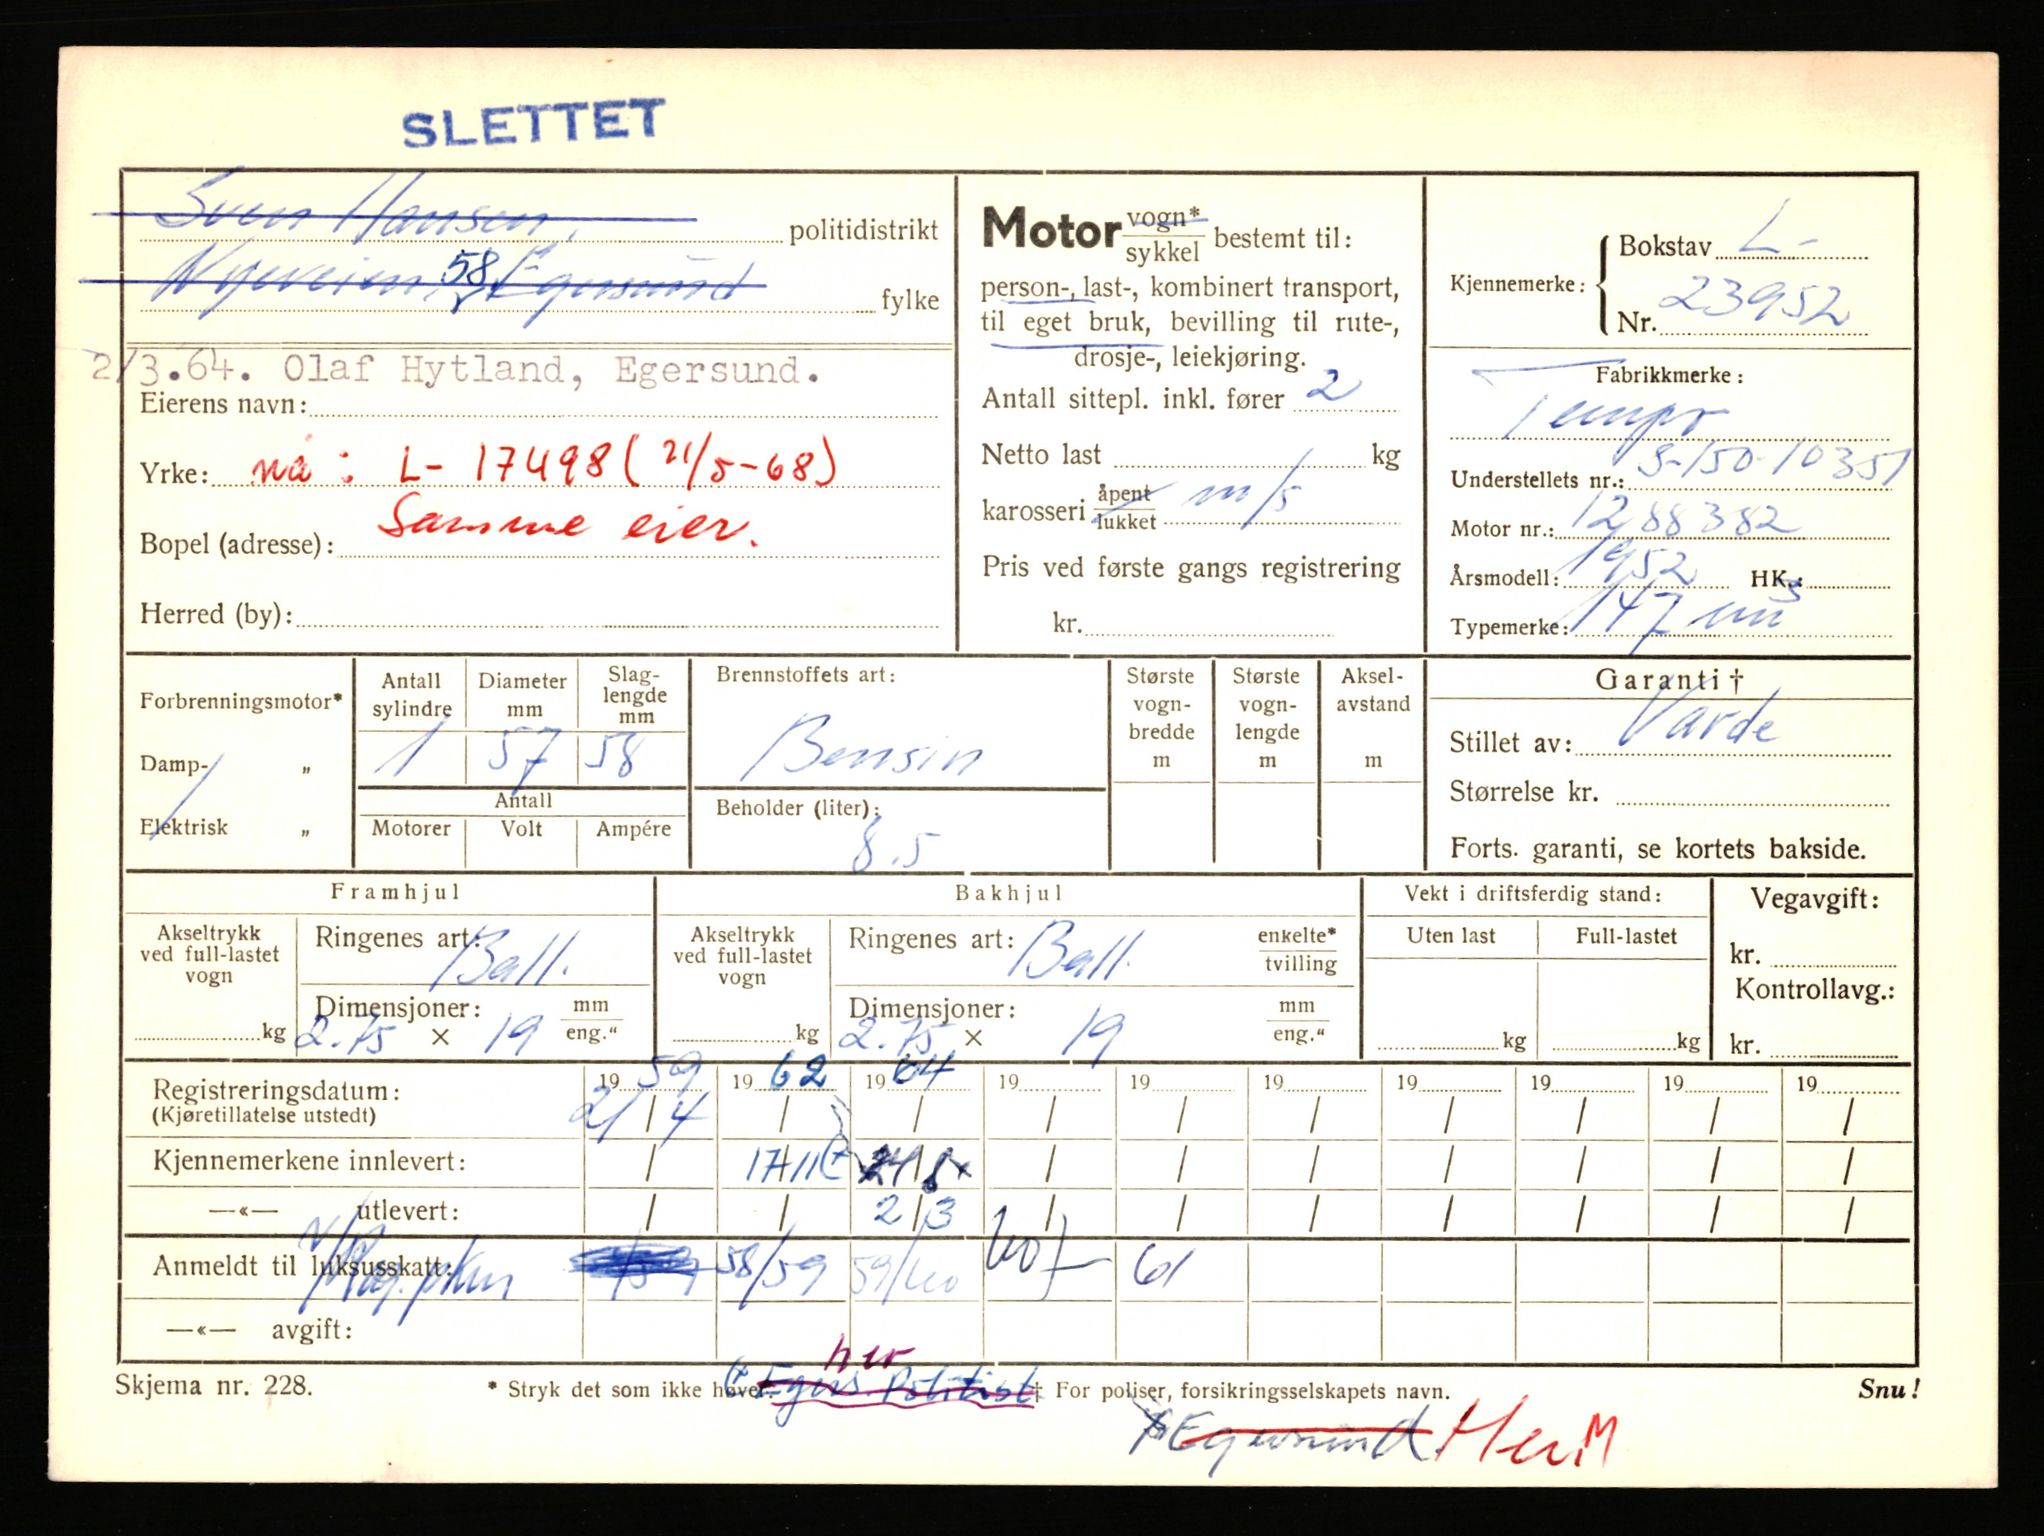 SLETTET
Sven Hansen, politidistrikt
Nyeveien 58, Egersund fylke
2/3.64. Olaf Hytland, Egersund.
Eierens navn:
Yrke: nå: L- 17498 (21/5-68)
Samme eier.
Bopel (adresse):
Herred (by):
Motor vogn* / sykkel bestemt til:
person-, last-, kombinert transport,
til eget bruk, bevilling til rute-,
drosje-, leiekjøring.
Antall sittepl. inkl. fører 2
Netto last kg
karosseri åpent / lukket m/s
Pris ved første gangs registrering
kr.
Kjennemerke: Bokstav L-
Nr. 23952
Fabrikkmerke:
Tempo
Understellets nr.: S-150-10351
Motor nr.: 1288382
Årsmodell: 1952 HK.:
Typemerke: 147 cm3
Forbrenningsmotor*
Damp- „
Elektrisk „
Antall sylindre Diameter mm Slag-lengde mm
1 57 58
Antall
Motorer Volt Ampére
Brennstoffets art:
Bensin
Beholder (liter):
8.5
Største vogn-bredde m
Største vogn-lengde m
Aksel-avstand m
Garanti †
Stillet av: Varde
Størrelse kr.
Forts. garanti, se kortets bakside.
Framhjul
Akseltrykk ved full-lastet vogn
kg
Ringenes art: Ball.
Dimensjoner: mm / eng.“
2.75 × 19
Bakhjul
Akseltrykk ved full-lastet vogn
kg
Ringenes art: Ball. enkelte* / tvilling
Dimensjoner: mm / eng.“
2.75 × 19
Vekt i driftsferdig stand:
Uten last Full-lastet
kg kg
Vegavgift:
kr.
Kontrollavg.:
kr.
Registreringsdatum: 19 59 19 62 19 64 19 19 19 19 19 19 19
(Kjøretillatelse utstedt) 21/4 / / / / / / / / /
Kjennemerkene innlevert: / 17/11 (x / / / / / / /
—«— utlevert: / / 2/3 / / / / / / /
Anmeldt til luksusskatt: 58/59 59/60 60/ 61
—«— avgift:
her
Skjema nr. 228. * Stryk det som ikke høver. (x Egers. Politist † For poliser, forsikringsselskapets navn. Snu!
Egersund Her. M